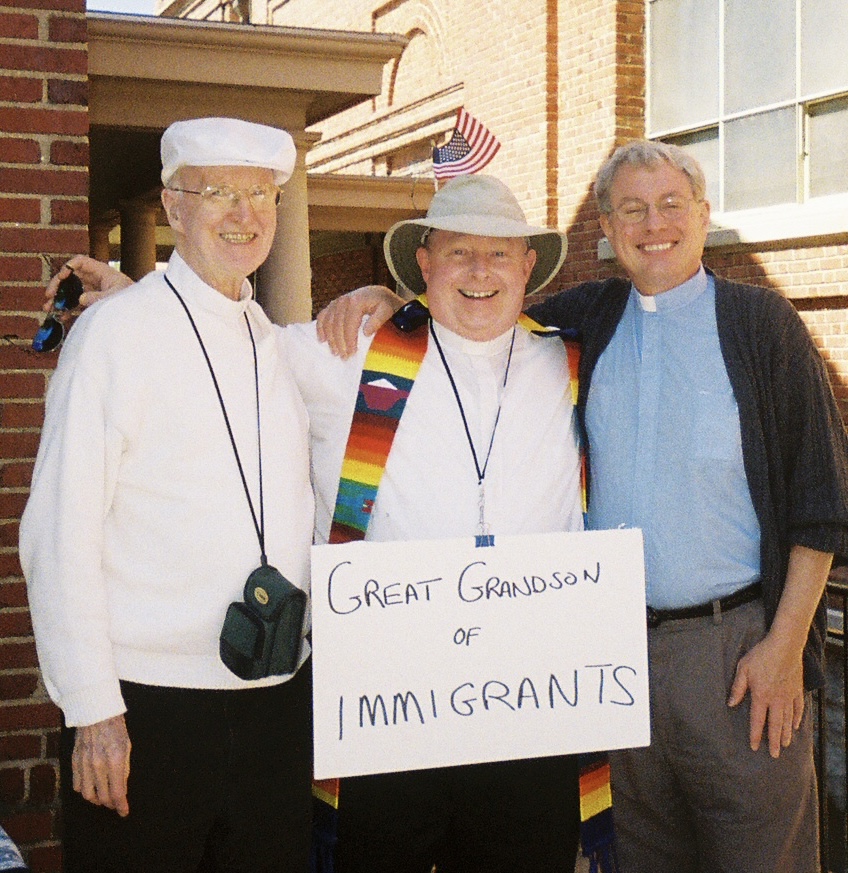 GREAT GRANDSON
OF
IMMIGRANTS